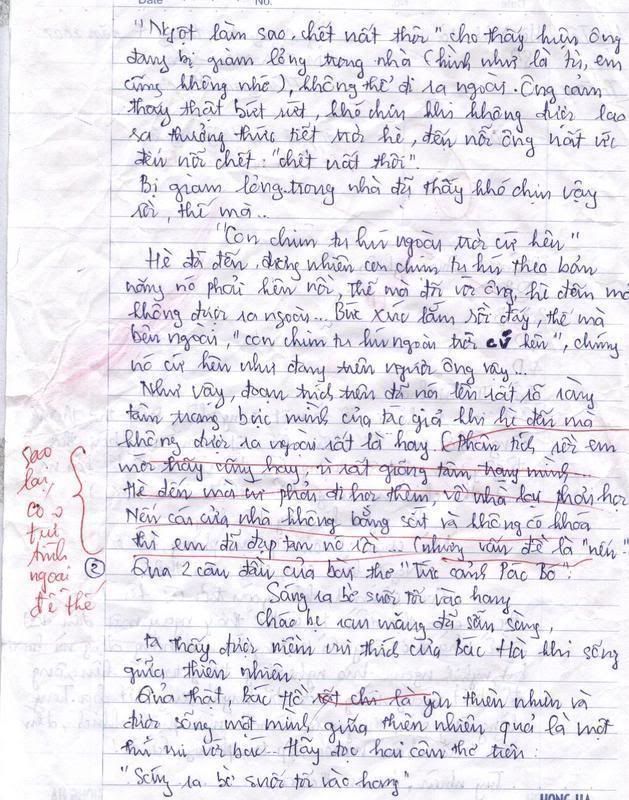 DATE No.
"Ngột làm sao, chết uất thôi" cho thấy hiện ông
đang bị giam lỏng trong nhà (hình như là tù, em
cũng không nhớ), không thể đi ra ngoài. Ông cảm
thấy thật bứt rứt, khó chịu khi không được lao
ra thưởng thức tiết trời hè, đến nỗi ông uất ức
đến nỗi chết: "chết uất thôi".
Bị giam lỏng trong nhà đã thấy khó chịu vậy
rồi, thế mà...
"Con chim tu hú ngoài trời cứ kêu"
Hè đã đến, đương nhiên con chim tu hú theo bản
năng nó phải kêu rồi, thế mà đối với ông, hè đến mà
không được ra ngoài... Bức xúc lắm rồi đấy, thế mà
bên ngoài, "con chim tu hú ngoài trời cứ kêu", chúng
nó cứ kêu như đang trêu người ông vậy...
Như vậy, đoạn trích trên đã nói lên rất rõ ràng
tâm trạng bực mình của tác giả khi hè đến mà
không được ra ngoài rất là hay (Phân tích rồi em
mới thấy cũng hay, vì rất giống tâm trạng mình...
Hè đến mà cứ phải đi học thêm, về nhà lại phải học
Nếu cái cửa nhà không bằng sắt và không có khóa
thì em đã đạp tan nó rồi... (nhưng vấn đề là "nếu"...
sao
lại
có
tư
tình
ngoài
đề thế
② Qua 2 câu đầu của bài thơ "Tức cảnh Pác Bó":
Sáng ra bờ suối tối vào hang
Cháo bẹ rau măng đã sẵn sàng,
ta thấy được niềm vui thích của Bác Hồ khi sống
giữa thiên nhiên
Quả thật, bác Hồ rất chi là yêu thiên nhiên và
được sống một mình giữa thiên nhiên quả là một
thú vui với bác... Hãy đọc hai câu thơ trên:
"Sáng ra bờ suối tối vào hang"
HONG HA